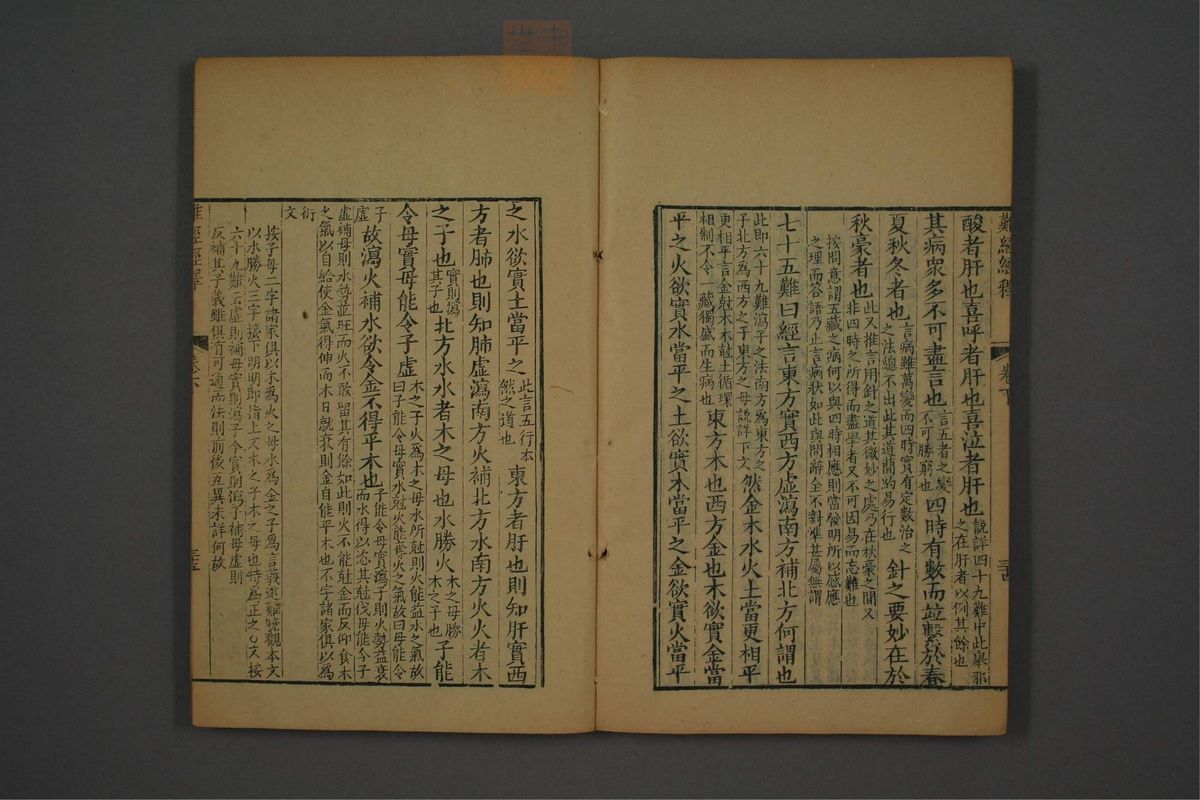 難經經釋 卷下 三十四
酸者肝也喜呼者肝也喜泣者肝也說詳四十九難中此舉邪之在肝者以例其餘也
其病衆多不可盡言也言五者之變不可勝窮也四時有數而並繫於春
夏秋冬者也言病雖萬變而四時實有定數治之之法總不出此其道簡約易行也針之要妙在於
秋豪者也此又推言用針之道其微妙之處乃在秋豪之間又非四時之所得而盡學者又不可因易而忘難也
按問意謂五藏之病何以與四時相應則當發明所以感應之理而答語乃止言病狀如此與問辭全不對準甚屬無謂
七十五難曰經言東方實西方虛瀉南方補北方何謂也
此即六十九難瀉子之法南方為東方之子北方為西方之子東方之母說詳下文然金木水火土當更相平
更相平言金尅木木尅土循環相制不令一藏獨盛而生病也東方木也西方金也木欲實金當
平之火欲實水當平之土欲實木當平之金欲實火當平
之水欲實土當平之此言五行本然之道也東方者肝也則知肝實西
方者肺也則知肺虛瀉南方火補北方水南方火火者木
之子也實則瀉其子也北方水水者木之母也水勝火木之母勝木之子也子能
令母實母能令子虛木之子火為木之母水所尅則火能益水之氣故曰子能令母實水尅火能奪火之氣故曰母能令
子虛故瀉火補水欲令金不得平木也子能令母實瀉子則火勢益衰而水得以恣其尅伐母能令子
虛補母則水勢益旺而火不敢留其有餘如此則火不能尅金而反仰食木之氣以自給使金氣得伸而木日就衰則金自能平木也不字諸家俱以為
衍文
按子母二字諸家俱以木為火之母水為金之子為言義遂難曉觀本文
以水勝火三字接下明明即指上文木之子木之母也特為正之○又按
六十九難云虛則補母實則瀉子今實則瀉子補母虛則
反補其子義雖俱有可通而法則前後互異未詳何故
難經經釋 卷下 三十五